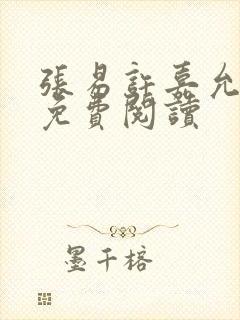 張易許嘉允
免費閱讀
墨千榕